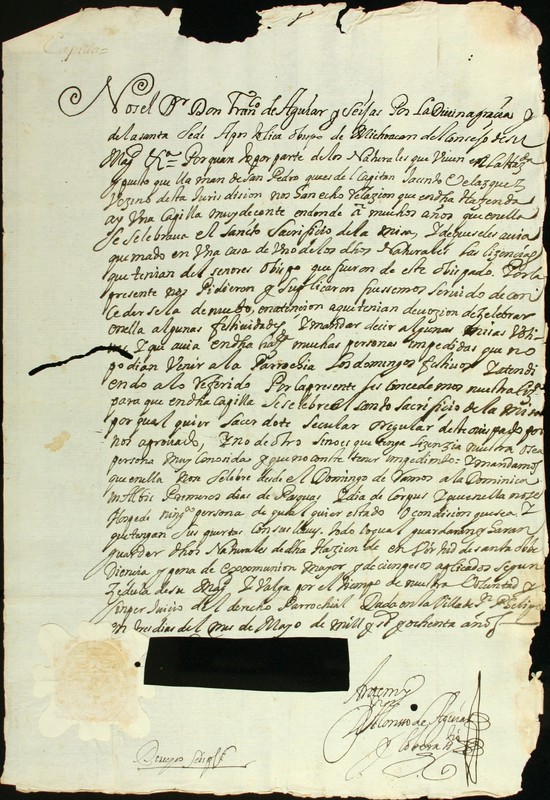 Capilla=
Nos el Dr Don Franco de Aguiar y Seijas Por La Divina gracia y
de la santa Sede Appostolica obispo de Michoacan del Consejo de su
Magd &a Por quanto por parte de los Naturales que Viven en La Hazda
y puesto que llaman de San Pedro que es del Capitan Jacinto Velazquez
Vezino de sta Jurisdision nos han echo Relazion que en dha Hazienda
ay Vna Capilla muy decente en donde a muchos años que en ella
se selebrava el sancto Sacrificio de la misa, y de averseles avia
quemado en Vna casa de Vno de los dhos Naturales las lizencias
que tenian de señores obispos que fueron de este obispado. Por la
presente nos Pidieron y suplicaron fuessemos servido de con
cederse la de nuebo, en atencion a que tenian devozion de zelebrar
en ella algunas festividades y mandar decir algunas misas
y que avia en dha hazda muchas personas impedidas que no
podian Venir a la Parrochia Los domingos y fiestas y atendi
endo a lo Referido Por la presente les concedemos nuestra lizа
para que en dha capilla se selebre el santo sacrificio de la missa
por qual quier sacerdote secular o regular de este obispado por
nos aprovado, y no de otro sino es que tenga lizenzia nuestra o sea
persona muy Conosida y que no conste tener impedimto y mandamos
que en ella no se selebre desde el Domingo de Ramos a la Dominica
in Albis Primeros dias de Pasquas y dia de Corpus y que en ella no se
ospede ningª persona de qual quier estado o condision que sea y
que tengan sus puertas con sus llaves. todo lo qual guardaran y haran
guardar dhos Naturales de dha Hazienda en Virtud de santa obe
diencia y pena de excomunion mayor y de cien pesos aplicados segun
Zedula de su Magd y Valga por el tiempo de nuestra Voluntad y
sin per Juicio del derecho Parrochial Dada en la Villa de Sn Phelipe
en tres dias del mes de Mayo de mill y ss y ochenta años
Ante my
Alonsso de Aguiar
y Lobera